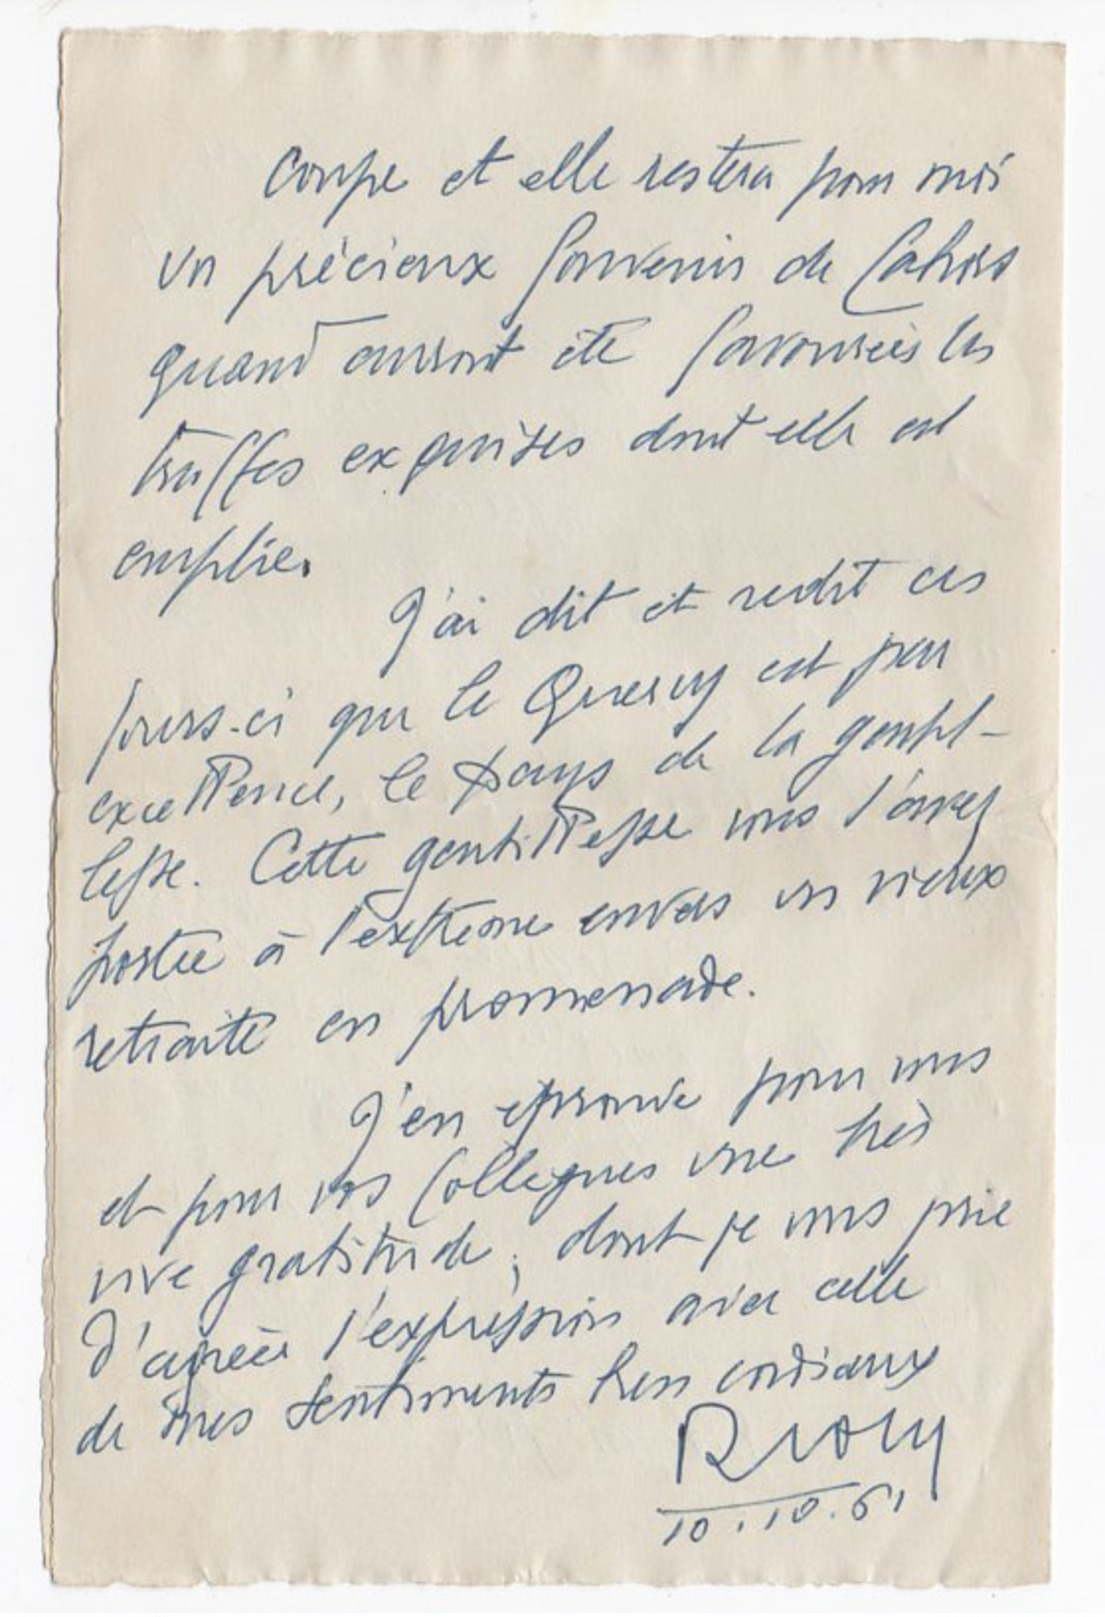 coupe et elle restera pour moi
un précieux souvenir de Cahors
quand auront été savourées les
truffes exquises dont elle est
emplie.
J'ai dit et redit ces
jours-ci que le Quercy est par
excellence, le pays de la gentil-
lesse. Cette gentillesse vous l'avez
portée à l'extrême envers un vieux
retraité en promenade.
J'en éprouve pour vous
et pour vos collègues une très
vive gratitude, dont je vous prie
d'agréer l'expression avec celle
de mes sentiments bien cordiaux
10.10.61